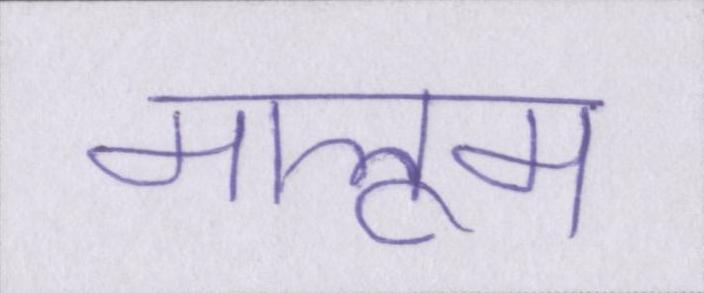 मालूम